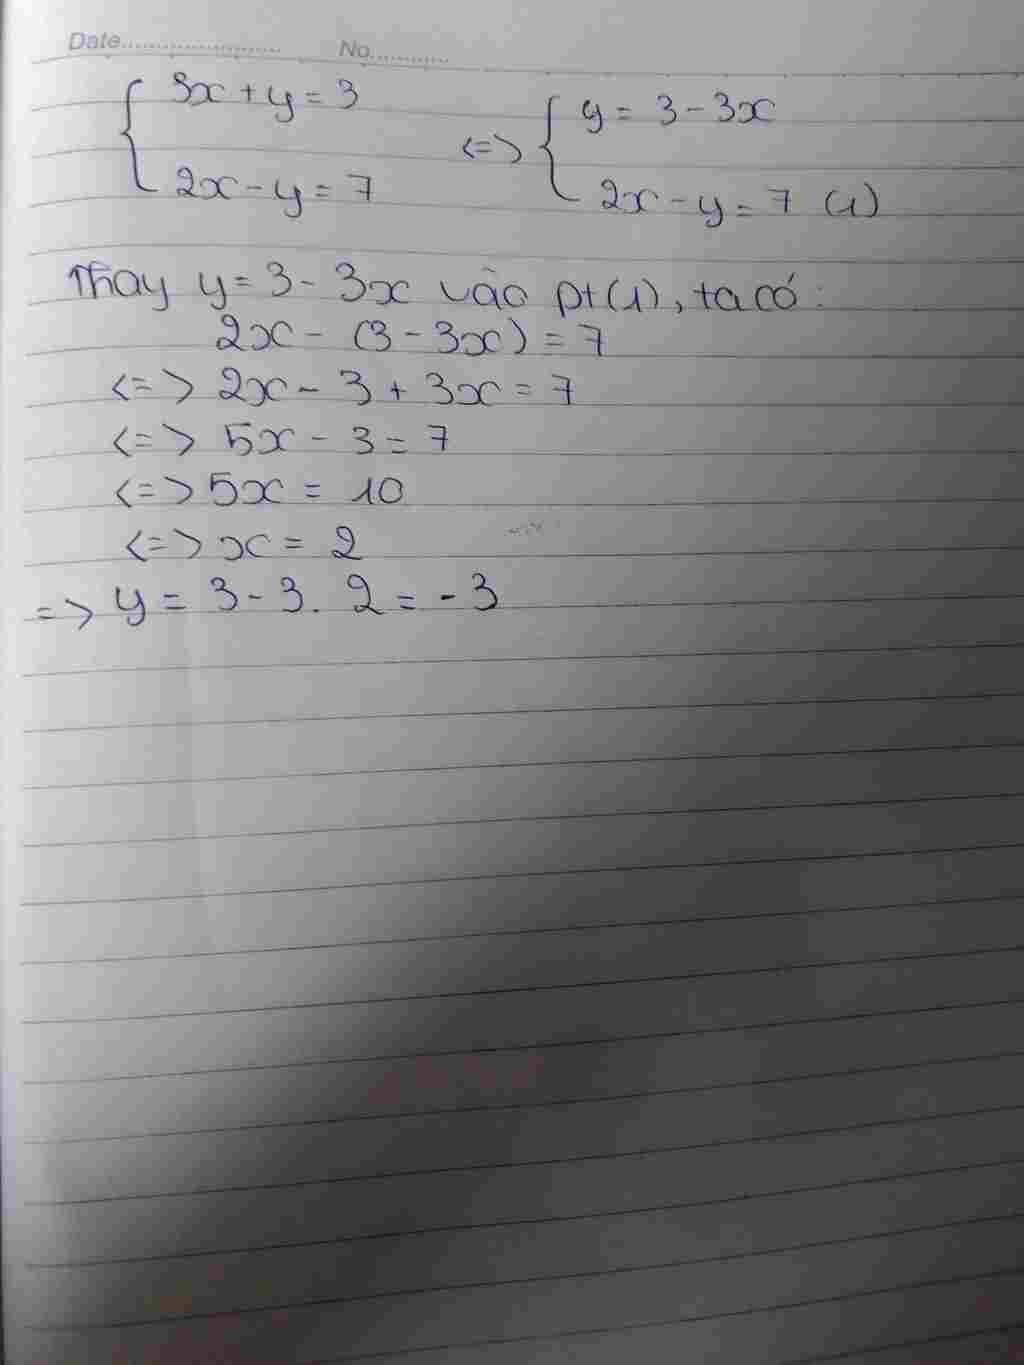 Date.................... No............
{ 3x + y = 3 <=> { y = 3 - 3x
2x - y = 7 2x - y = 7 (1)
Thay y = 3 - 3x vào pt (1), ta có:
2x - (3 - 3x) = 7
<=> 2x - 3 + 3x = 7
<=> 5x - 3 = 7
<=> 5x = 10
<=> x = 2
=> y = 3 - 3. 2 = - 3